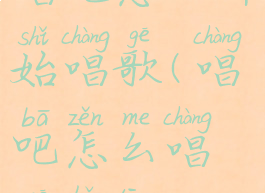 shǐ chàng gē chàng
始唱歌(唱
bā zěn me chàng
吧怎么唱